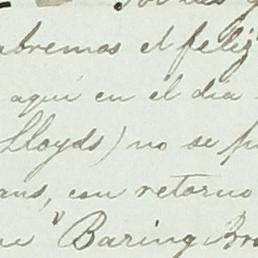 abremos el feliz
aquí en el día
Lloyds) no se p
ans, con retorno
"Baring Bro